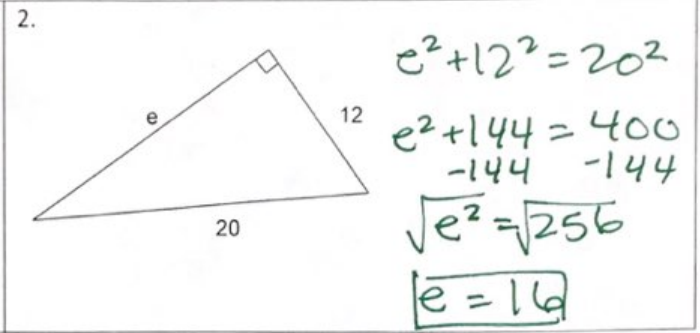 2.
e
12
20
e²+12²=20²
e²+144=400
-144 -144
√e²=√256
e=16